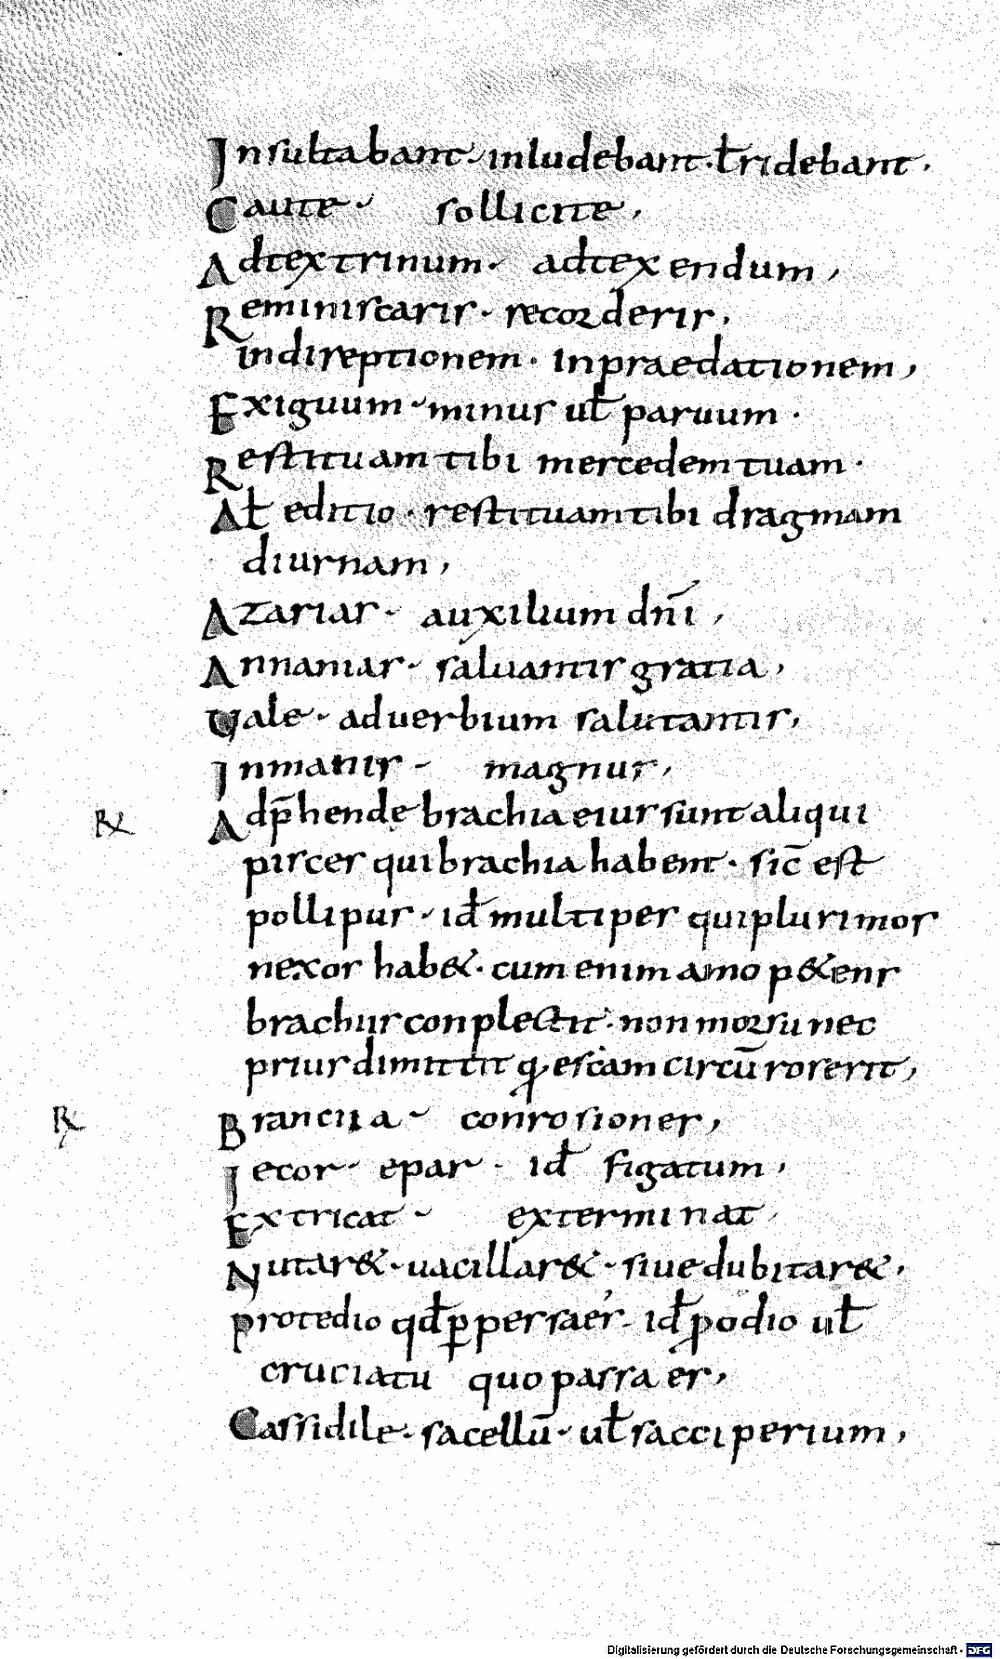 Insultabant· inludebant· ł ridebant·
Caute· sollicite,
Adtextrinum· adtexendum,
Reminiscaris· recorderis,
indireptionem· inpraedationem,
Exiguum· minus uł paruum·
Restituam tibi mercedem tuam·
Ał editio· restituam tibi dragmam
diurnam,
Azarias· auxilium dn̄i,
Annanias· saluantis gratia,
Uale· aduerbium salutantis,
Inmanis· magnus,
Adp̄hende brachia eius sunt aliqui
pisces qui brachia habent· sic̄ est
pollipus· id̄ multipes qui plurimos
nexos hab&· cum enim amo p&ens
brachiis conplectit· non morsu nec
prius dimittit q̨ escam circū roserit,
R̨
Brancia· conrosiones,
R̨
Iecor· epar· id̄ figatum,
Extricat· exterminat
Nutar&· uacillar&· siue dubitar&,
protedio qd̄ p̱persaes· id̄ p̱odio uł
cruciatu quo passa es,
Cassidile· sacellū· uł sacciperium,
Digitalisierung gefördert durch die Deutsche Forschungsgemeinschaft - DFG